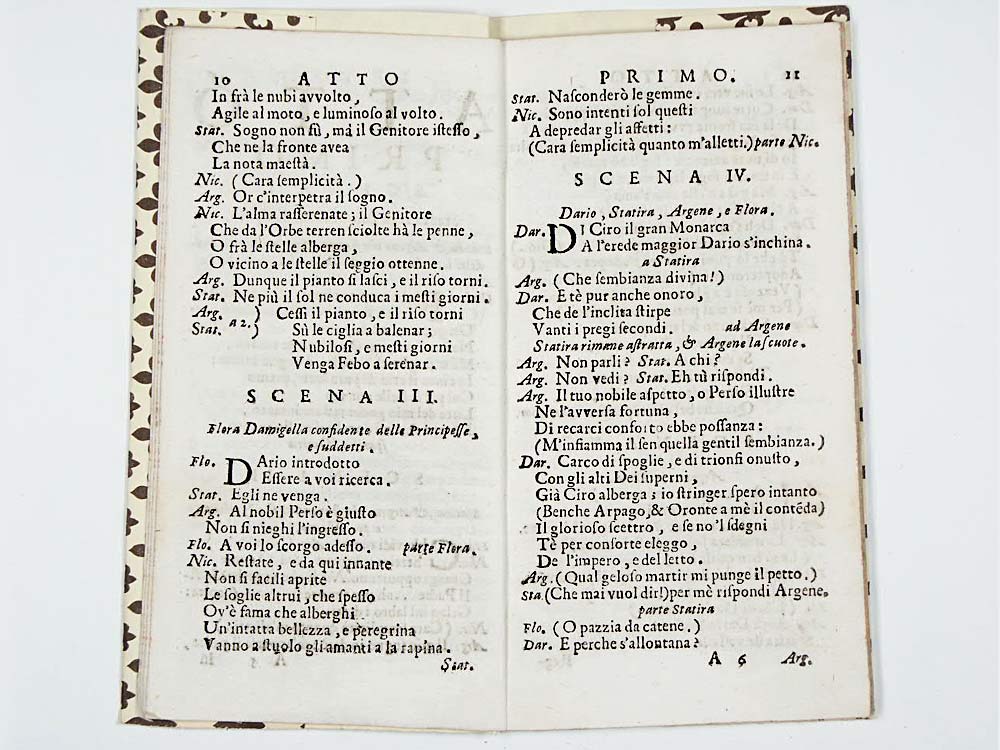 10 ATTO
In frà le nubi avvolto,
Agile al moto, e luminoso al volto.
Stat. Sogno non fù, mà il Genitore istesso,
Che ne la fronte avea
La nota maestà.
Nic. (Cara semplicità.)
Arg. Or c'interpetra il sogno.
Nic. L'alma rasserenate; il Genitore
Che da l'Orbe terren sciolte hà le penne,
O frà le stelle alberga,
O vicino a le stelle il seggio ottenne.
Arg. Dunque il pianto si lasci, e il riso torni.
Stat. Ne più il sol ne conduca i mesti giorni.
Arg. ) Cessi il pianto, e il riso torni
Stat. a 2. ) Sù le ciglia a balenar;
Nubilosi, e mesti giorni
Venga Febo a serenar.
SCENA III.
Flora Damigella confidente delle Principesse,
e suddetti.
Flo. DArio introdotto
Essere a voi ricerca.
Stat. Egli ne venga.
Arg. Al nobil Perso è giusto
Non si nieghi l'ingresso.
Flo. A voi lo scorgo adesso. parte Flora.
Nic. Restate, e da qui innante
Non sì facili aprite
Le soglie altrui, che spesso
Ov'è fama che alberghi
Un'intatta bellezza, e peregrina
Vanno a stuolo gli amanti a la rapina.
Stat.
PRIMO. 11
Stat. Nasconderò le gemme.
Nic. Sono intenti sol questi
A depredar gli affetti:
(Cara semplicità quanto m'alletti.) parte Nic.
SCENA IV.
Dario, Statira, Argene, e Flora.
Dar. DI Ciro il gran Monarca
A l'erede maggior Dario s'inchina.
a Statira
Arg. (Che sembianza divina!)
Dar. E tè pur anche onoro,
Che de l'inclita stirpe
Vanti i pregi secondi. ad Argene
Statira rimane astratta, & Argene la scuote.
Arg. Non parli? Stat. A chi?
Arg. Non vedi? Stat. Eh tù rispondi.
Arg. Il tuo nobile aspetto, o Perso illustre
Ne l'avversa fortuna,
Di recarci conforto ebbe possanza:
(M'infiamma il sen quella gentil sembianza.)
Dar. Carco di spoglie, e di trionfi onusto,
Con gli alti Dei superni,
Già Ciro alberga; io stringer spero intanto
(Benche Arpago, & Oronte a mè il contēda)
Il glorioso scettro, e se no'l sdegni
Tè per consorte eleggo,
De l'impero, e del letto.
Arg. (Qual geloso martir mi punge il petto.)
Sta. (Che mai vuol dir!) per mè rispondi Argene.
parte Statira
Flo. (O pazzia da catene.)
Dar. E perche s'allontana?
A 6 Arg.